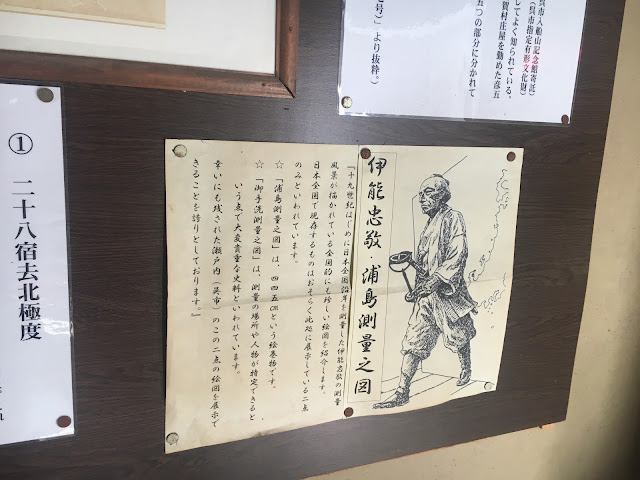 呉市入船山記念館寄託）
（呉市指定有形文化財）
してよく知られている。
賀村庄屋を勤めた彦五
五つの部分に分かれて
号）」より抜粋。）
伊能忠敬・浦島測量之図
『十九世紀はじめに日本全国沿岸を測量した伊能忠敬の測量
風景が描かれている全国的にも珍しい絵図を紹介します。
日本全国で現存するものはおそらく此処に展示している二点
のみといわれています。
☆「浦島測量之図」は、四四五㎝という絵巻物です。
☆「御手洗測量之図」は、測量の場所や人物が特定できると
いう点で大変貴重な史料といわれています。
幸いにも残された瀬戸内（呉市）のこの二点の絵図を展示で
きることを誇りとしております。』
① 二十八宿去北極度